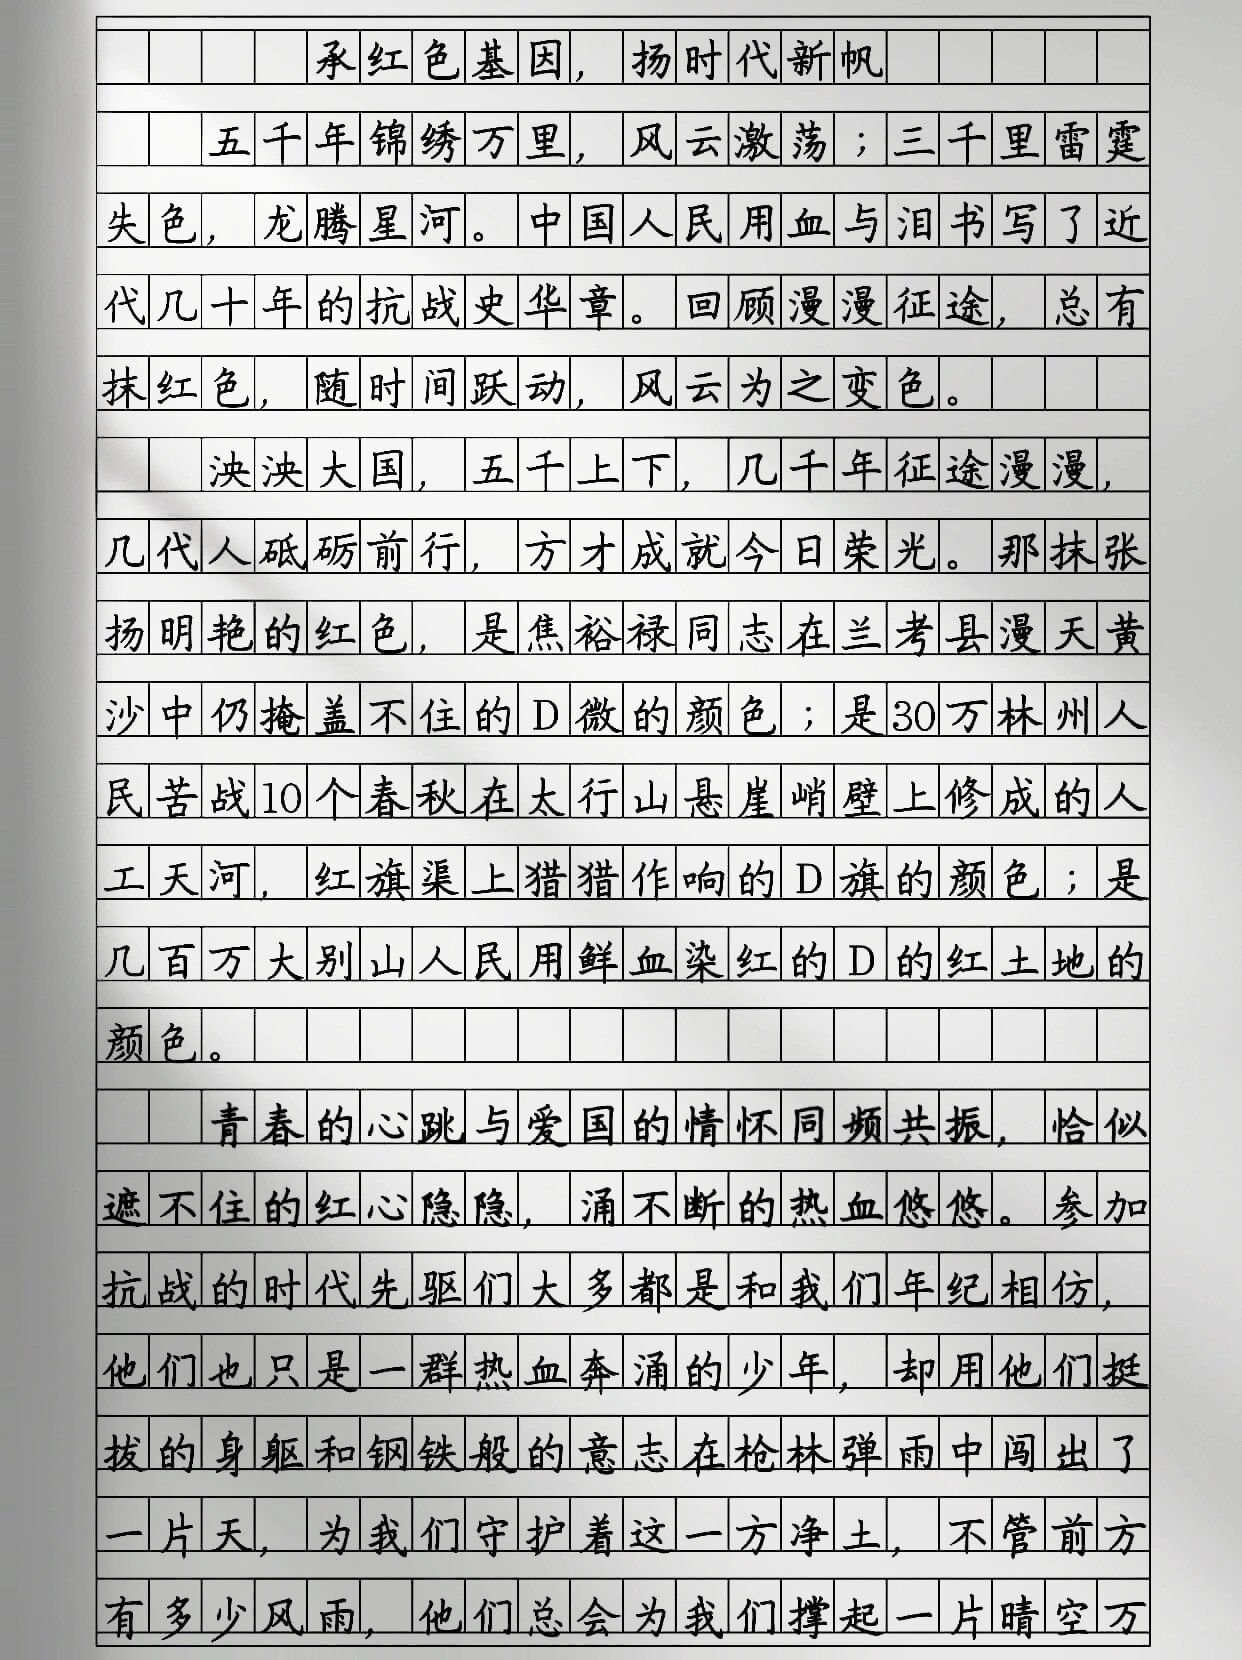 承红色基因，扬时代新帆
五千年锦绣万里，风云激荡；三千里雷霆
失色，龙腾星河。中国人民用血与泪书写了近
代几十年的抗战史华章。回顾漫漫征途，总有
抹红色，随时间跃动，风云为之变色。
泱泱大国，五千上下，几千年征途漫漫，
几代人砥砺前行，方才成就今日荣光。那抹张
扬明艳的红色，是焦裕禄同志在兰考县漫天黄
沙中仍掩盖不住的D微的颜色；是30万林州人
民苦战10个春秋在太行山悬崖峭壁上修成的人
工天河，红旗渠上猎猎作响的D旗的颜色；是
几百万大别山人民用鲜血染红的D的红土地的
颜色。
青春的心跳与爱国的情怀同频共振，恰似
遮不住的红心隐隐，涌不断的热血悠悠。参加
抗战的时代先驱们大多都是和我们年纪相仿，
他们也只是一群热血奔涌的少年，却用他们挺
拔的身躯和钢铁般的意志在枪林弹雨中闯出了
一片天，为我们守护着这一方净土，不管前方
有多少风雨，他们总会为我们撑起一片晴空万